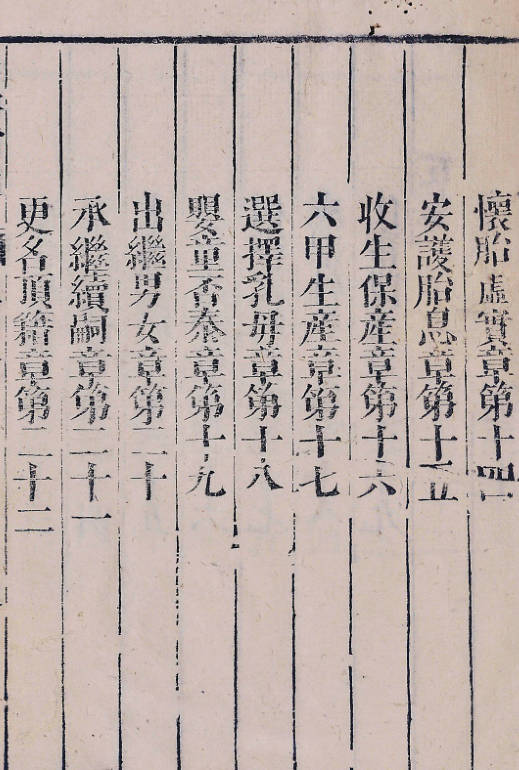 懷胎虛實章第十四
安護胎息章第十五
收生保產章第十六
六甲生產章第十七
選擇乳母章第十八
嬰童否泰章第十九
出繼男女章第二十
承繼續嗣章第二十一
更名頂籍章第二十二